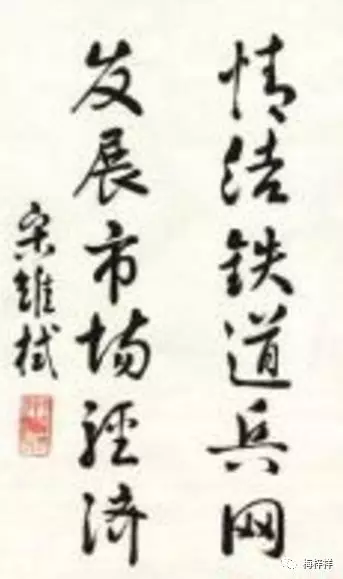 情结铁道兵网
发展市场经济
宋雄栻
梅梓祥